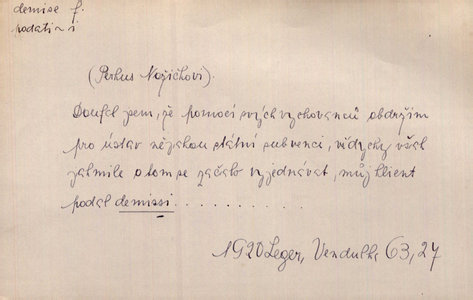 demise f.
podati ji
(Perkus Nožičkovi).
Doufal jsem, že pomocí svých vychovanců obdržím
pro ústav nějakou státní subvenci, vždycky však
jakmile o tom se začalo vyjednávat, můj klient
podal demissi..........
1920 Leger, Vendulka 63,27